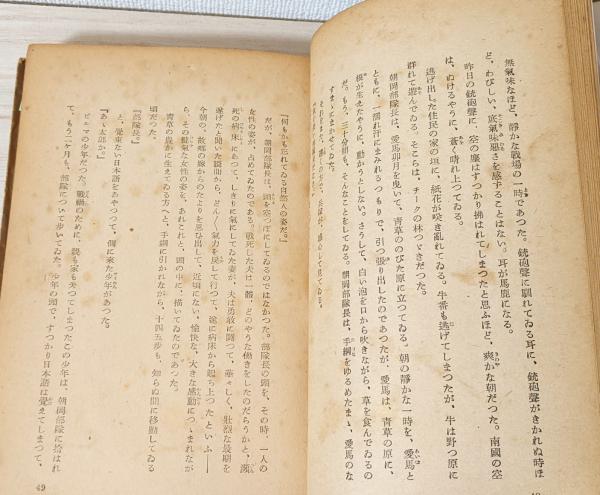 無氣味なほど、靜かな戰場の一時であつた。銃砲聲に馴れてゐる耳に、銃砲聲がきかれぬ時ほ
ど、わびしい、底氣味惡さを感ずることはない。耳が馬鹿になる。
昨日の銃砲聲に、空の塵はすつかり拂はれてしまつたと思ふほど、爽かな朝だつた。南國の空
は、ぬけるやうに、蒼く晴れ上つてゐる。
逃げ出した住民の家の垣に、紙花が咲き亂れてゐる。牛番も逃げてしまつたが、牛は野つ原に
群れて遊んでゐる。そこらは、チークの林つゞきだつた。
朝岡部隊長は、愛馬卯月を曳いて、靑草ののびた原に立つてゐる。朝の靜かな一時を、愛馬と
ともに、一濡れ汗にまみれるつもりで、引つ張り出したのであつたが、愛馬は、靑草の原に、
根が生えたやうに、動かうとしない。さうして、白い泡を口から吹きながら、草を食んでゐるの
だ。もう、三十分間も、そんなことをしてゐる。朝岡部隊長は、手綱をゆるめたまゝ、愛馬のな
すまゝにまかせてゐた。
『何もかも忘れてゐる自然人の姿だ。』
だが、朝岡部隊長は、頭を空つぽにしてゐるのではなかつた。部隊長の頭を、その時、一人の
女性の姿が、占めてゐたのである。戰死した夫は一體、どのやうな働きをしたのだらうかと、瀕
死の病床にあつて、しきりに氣にしてゐた妻が、夫は勇敢に闘つて、華々しく、壯烈な最期を
遂げたと聞いた瞬間から、どん/\氣力を戻して行つて、遂に病床から起ち上つたといふ——
今朝の、故郷の嫁からのたよりを思ひ出して、近頃にない、愉快な、大きな感動につゝまれなが
ら、その健氣な女性の姿を、あれこれと、頭の中に、描いてゐたのであつた。
靑草の豊かに生えてゐる方へと、手綱に引かれながら、十四五步も、知らぬ間に移動してゐる
頃だつた。
『部隊長さ』
と、覺束ない日本語をあやつつて、側に來た少年があつた。
『あゝ太郎か』
ビルマの少年だつた。戰禍のために、親も家も失つてしまつたこの少年は、朝岡部隊に拾はれ
て、もう二ヶ月も、部隊について步いてゐた。少年の頭で、すつかり日本語は覺えてしまつて、
49